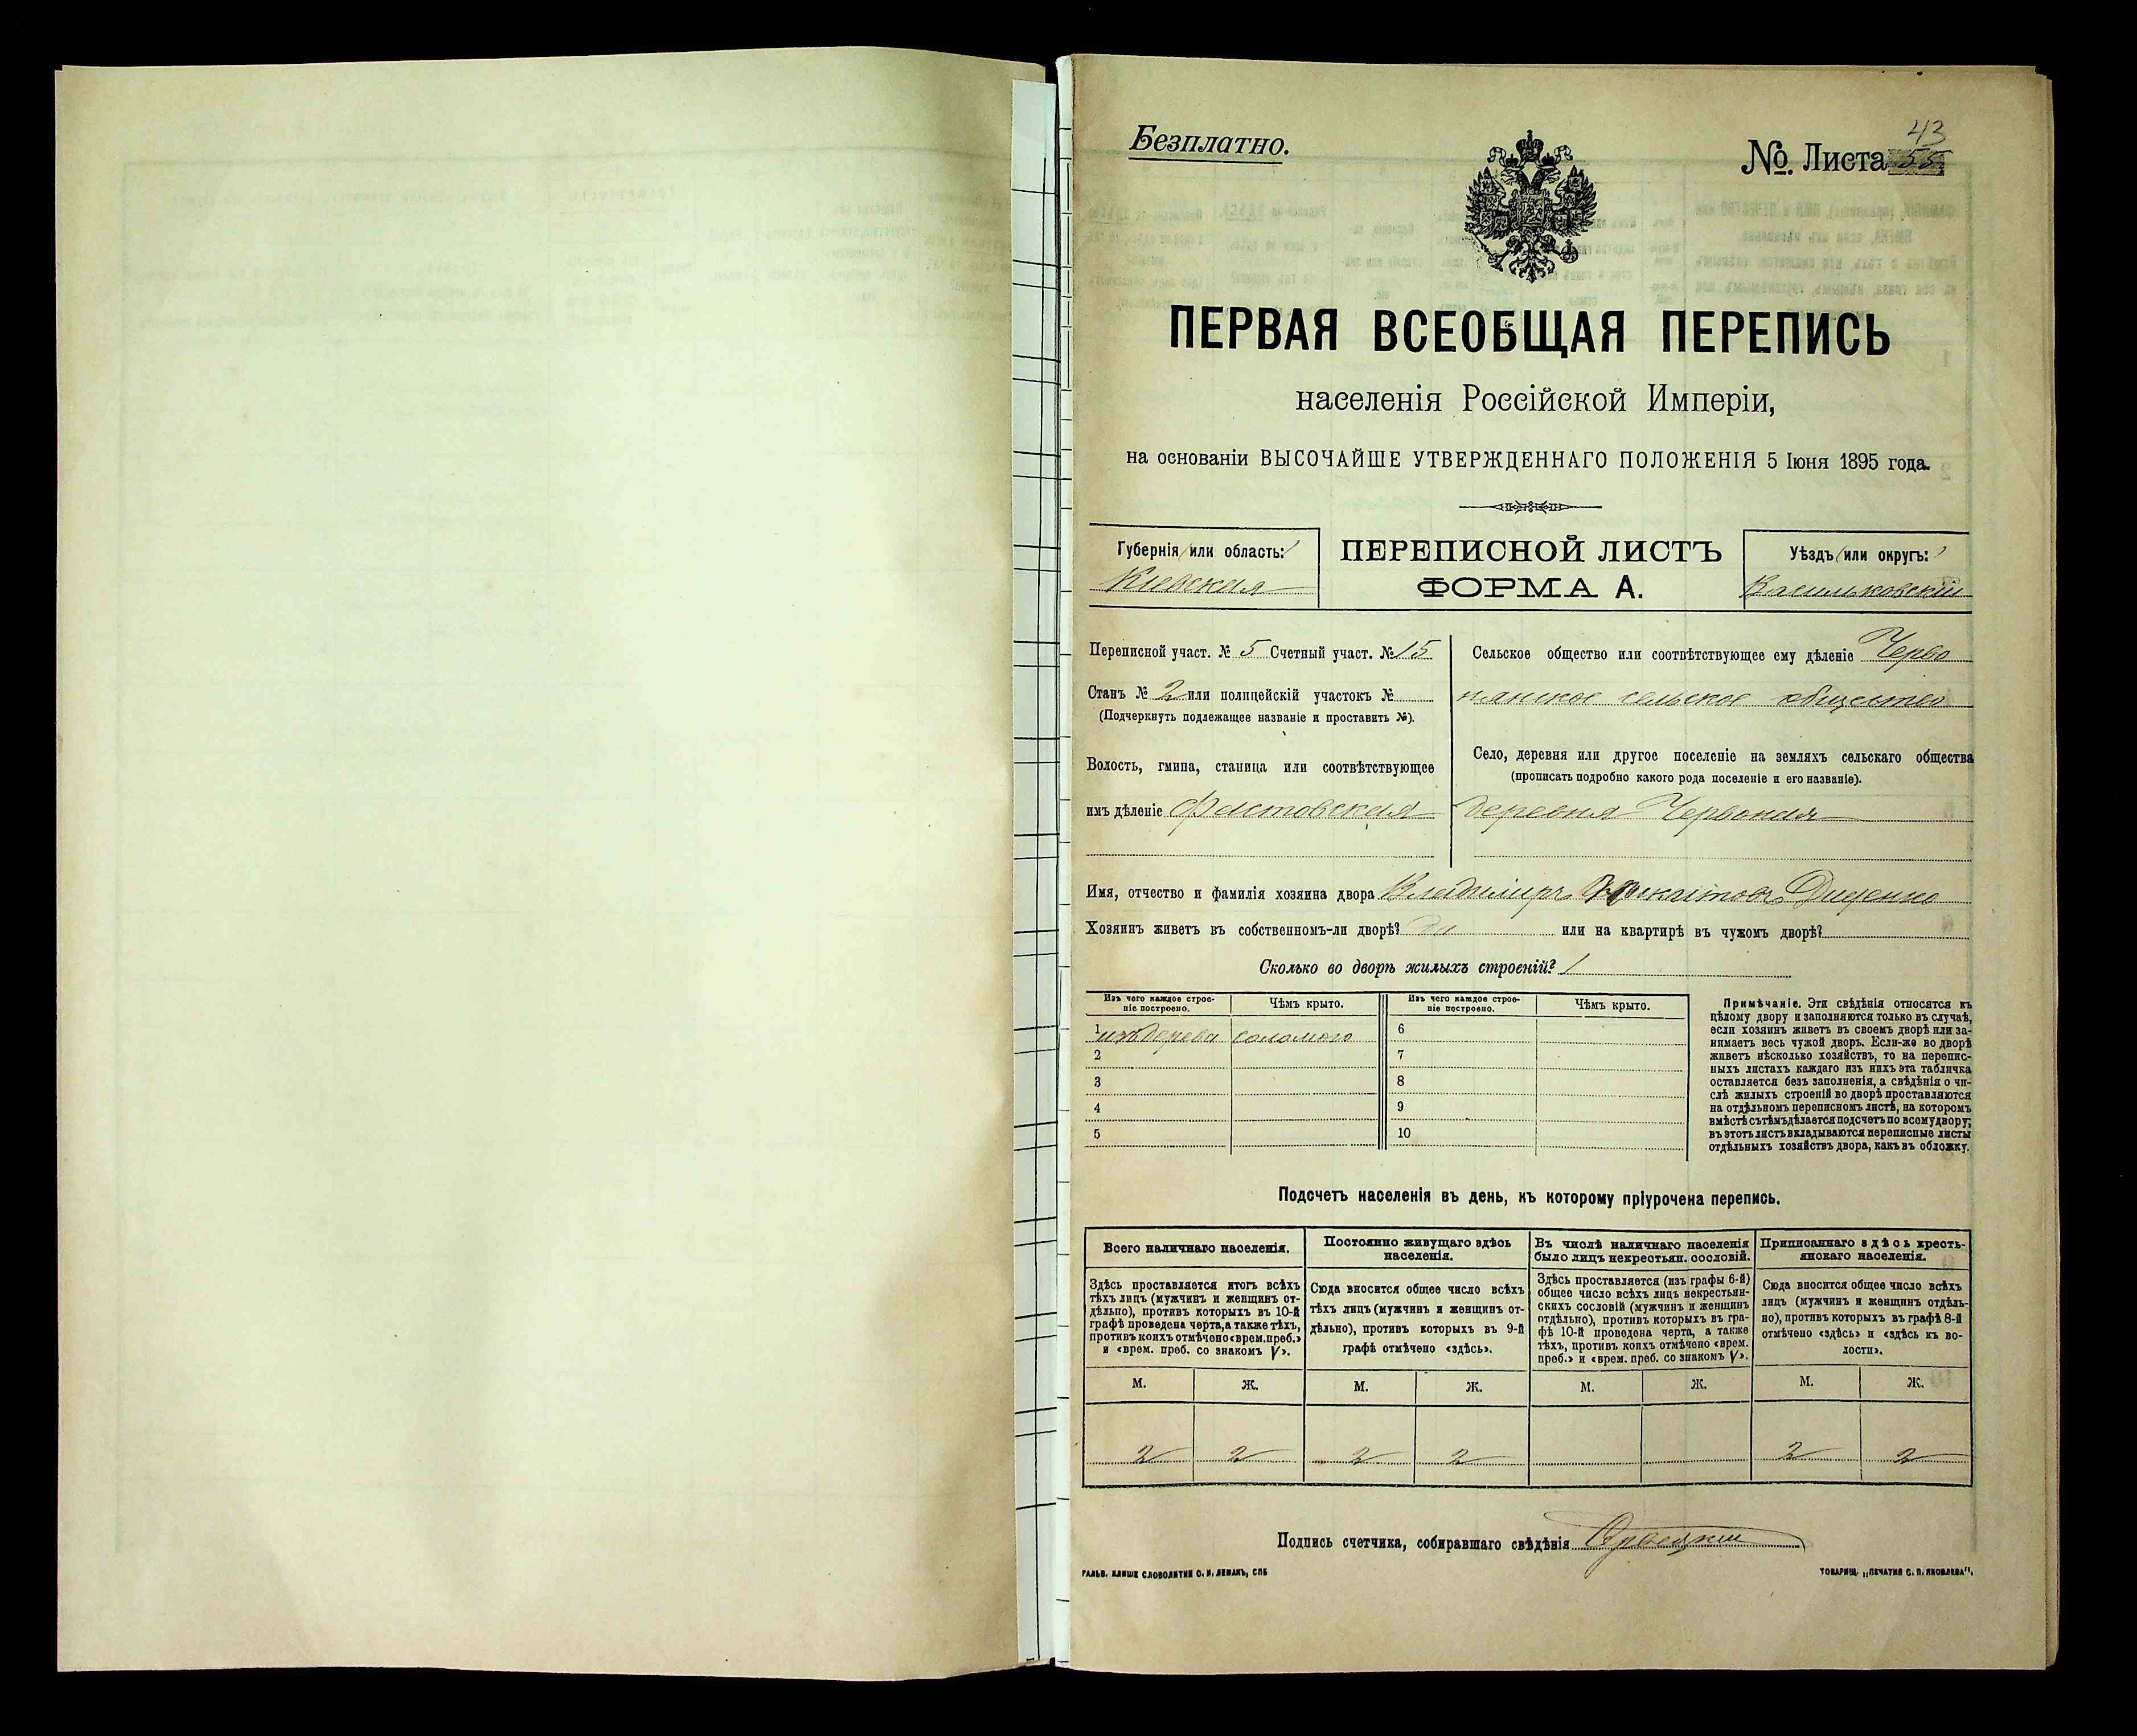 Безплатно.
43
№. Листа 55
ПЕРВАЯ ВСЕОБЩАЯ ПЕРЕПИСЬ
населенія Россійской Имперіи,
на основаніи ВЫСОЧАЙШЕ УТВЕРЖДЕННАГО ПОЛОЖЕНІЯ 5 Іюня 1895 года.
Губернія или область:
Кіевская
ПЕРЕПИСНОЙ ЛИСТЪ
ФОРМА А.
Уѣздъ или округъ:
Васильковскій
Переписной участ. № 5 Счетный участ. № 15
Станъ № 2 или полицейскій участокъ №
(Подчеркнуть подлежащее названіе и проставить №).
Волость, гмина, станица или соотвѣтствующее
имъ дѣленіе Фастовская
Сельское общество или соотвѣтствующее ему дѣленіе Черво
нянское сельское общество
Село, деревня или другое поселеніе на земляхъ сельскаго общества
(прописать подробно какого рода поселеніе и его названіе).
деревня Червоная
Имя, отчество и фамилія хозяина двора Владиміръ Диценко
Хозяинъ живетъ въ собственномъ-ли дворѣ? Да или на квартирѣ въ чужомъ дворѣ?
Сколько во дворѣ жилыхъ строеній? 1
Изъ чего каждое строе-
ніе построено.
Чѣмъ крыто.
Изъ чего каждое строе-
ніе построено.
Чѣмъ крыто.
1 изъ дерева соломою
2
3
4
5
6
7
8
9
10
Примѣчаніе. Эти свѣдѣнія относятся къ
цѣлому двору и заполняются только въ случаѣ,
если хозяинъ живетъ въ своемъ дворѣ или за-
нимаетъ весь чужой дворъ. Если-же во дворѣ
живетъ нѣсколько хозяйствъ, то на перепис-
ныхъ листахъ каждаго изъ нихъ эта табличка
оставляется безъ заполненія, а свѣдѣнія о чи-
слѣ жилыхъ строеній во дворѣ проставляются
на отдѣльномъ переписномъ листѣ, на которомъ
вмѣстѣ съ тѣмъ дѣлается подсчетъ по всему двору;
въ этотъ листъ вкладываются переписные листы
отдѣльныхъ хозяйствъ двора, какъ въ обложку.
Подсчетъ населенія въ день, къ которому пріурочена перепись.
Всего наличнаго населенія.
Здѣсь проставляется итогъ всѣхъ
тѣхъ лицъ (мужчинъ и женщинъ от-
дѣльно), противъ которыхъ въ 10-й
графѣ проведена черта, а также тѣхъ,
противъ коихъ отмѣчено «врем. преб.»
и «врем. преб. со знакомъ V».
Постоянно живущаго здѣсь
населенія.
Сюда вносится общее число всѣхъ
тѣхъ лицъ (мужчинъ и женщинъ от-
дѣльно), противъ которыхъ въ 9-й
графѣ отмѣчено «здѣсь».
Въ числѣ наличнаго населенія
было лицъ некрестьян. сословій.
Здѣсь проставляется (изъ графы 6-й)
общее число всѣхъ лицъ некрестьян-
скихъ сословій (мужчинъ и женщинъ
отдѣльно), противъ которыхъ въ гра-
фѣ 10-й проведена черта, а также
тѣхъ, противъ коихъ отмѣчено «врем.
преб.» и «врем. преб. со знакомъ V».
Приписаннаго здѣсь кресть-
янскаго населенія.
Сюда вносится общее число всѣхъ
лицъ (мужчинъ и женщинъ отдѣль-
но), противъ которыхъ въ графѣ 8-й
отмѣчено «здѣсь» и «здѣсь къ во-
лости».
М. Ж. М. Ж. М. Ж. М. Ж.
2 2 2 2 2 2
Подпись счетчика, собиравшаго свѣдѣнія
ГАЛЬВ. КЛИШЕ СЛОВОЛИТНИ О. И. ЛЕМАНЪ, СПБ
ТОВАРИЩ. „ПЕЧАТНЯ С. П. ЯКОВЛЕВА“.